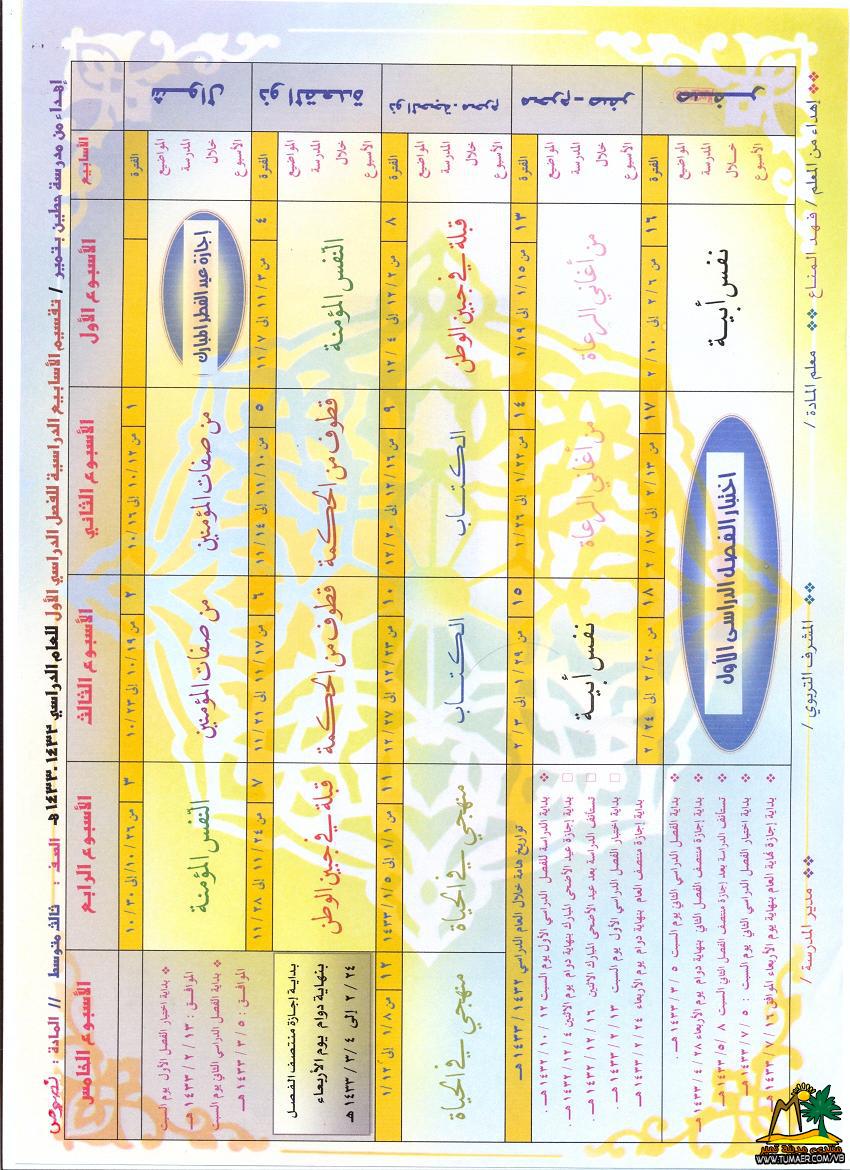 إهداء من مدرسة حطين بتمير / تقسيم الأسابيع الدراسية للفصل الدراسي الأول للعام الدراسي ١٤٣٢-١٤٣٣ هـ الصف : ثالث متوسط // المادة : نصوص
الأسابيع
الأسبوع الأول
الأسبوع الثاني
الأسبوع الثالث
الأسبوع الرابع
الأسبوع الخامس
شوال
الفترة
١ من ١٠/١٢ إلى ١٠/١٦
٢ من ١٠/١٩ إلى ١٠/٢٣
٣ من ١٠/٢٦ إلى ١٠/٣٠
المواضيع
المدرسة
خلال
الأسبوع
إجازة عيد الفطر المبارك
من صفات المؤمنين
من صفات المؤمنين
النفس المؤمنة
❖ بداية اختبار الفصل الأول يوم السبت
الموافق : ١٣ / ٢ / ١٤٣٣ هـ
❖ بداية الفصل الدراسي الثاني يوم السبت
الموافق : ٥ / ٣ / ١٤٣٣ هـ
ذو القعدة
الفترة
٤ من ١١/٣ إلى ١١/٧
٥ من ١١/١٠ إلى ١١/١٤
٦ من ١١/١٧ إلى ١١/٢١
٧ من ١١/٢٤ إلى ١١/٢٨
المواضيع
المدرسة
خلال
الأسبوع
النفس المؤمنة
قطوف من الحكمة
قطوف من الحكمة
قبلة في جبين الوطن
بداية إجازة منتصف الفصل
بنهاية دوام يوم الأربعاء
٢/٢٤ إلى ٣/٤ / ١٤٣٣ هـ
ذو الحجة - محرم
الفترة
٨ من ١٢/٢ إلى ١٢/٤
٩ من ١٢/١٦ إلى ١٢/٢٠
١٠ من ١٢/٢٣ إلى ١٢/٢٧
١١ من ١/١ إلى ١/٥/١٤٣٣
١٢ من ١/٨ إلى ١/١٢
المواضيع
المدرسة
خلال
الأسبوع
قبلة في جبين الوطن
الكتاب
الكتاب
منهجي في الحياة
منهجي في الحياة
محرم - صفر
الفترة
١٣ من ١/١٥ إلى ١/١٩
١٤ من ١/٢٢ إلى ١/٢٦
١٥ من ١/٢٩ إلى ٢/٣
تواريخ هامة خلال العام الدراسي ١٤٣٢ / ١٤٣٣ هـ
المواضيع
المدرسة
خلال
الأسبوع
من أغاني الرعاة
من أغاني الرعاة
نفس أبية
❖ بداية الدراسة للفصل الدراسي الأول يوم السبت ١٢ / ١٠ / ١٤٣٢ هـ .
بداية إجازة عيد الأضحى المبارك بنهاية دوام يوم الاثنين ٤ / ١٢ / ١٤٣٢ هـ
تستأنف الدراسة بعد عيد الأضحى المبارك الاثنين ١٦ / ١٢ / هـ
بداية اختبار الفصل الدراسي الأول يوم السبت ١٣ / ٢ / ١٤٣٣ هـ
بداية إجازة منتصف العام بنهاية دوام يوم الأربعاء ٢٤ / ٢ / ١٤٣٣ هـ
صفر
الفترة
١٦ من ٢/٦ إلى ٢/١٠
١٧ من ٢/١٣ إلى ٢/١٧
١٨ من ٢/٢٠ إلى ٢/٢٤
المواضيع
المدرسة
خلال
الأسبوع
نفس أبية
اختبار الفصل الدراسي الأول
❖ بداية الفصل الدراسي الثاني يوم السبت ٥ / ٣ / ١٤٣٣ هـ .
❖ بداية إجازة منتصف الفصل الثاني بنهاية دوام يوم الأربعاء ٢٨ / ٤ / ١٤٣٣ هـ
❖ تستأنف الدراسة بعد إجازة منتصف الفصل الثاني السبت ٨ / ٥ / ١٤٣٣ هـ
❖ بداية اختبار الفصل الثاني يوم السبت : ٥ / ٧ / ١٤٣٣ هـ
❖ بداية إجازة نهاية العام بنهاية يوم الأربعاء الموافق ١٦ / ٧ / ١٤٣٣ هـ
❖❖ إهداء من المعلم / فهد المناع ❖❖ معلم المادة / ❖❖ المشرف التربوي / ❖❖ مدير المدرسة /
منتدى مدينة تمير
WWW.TUMAER.COM/VB